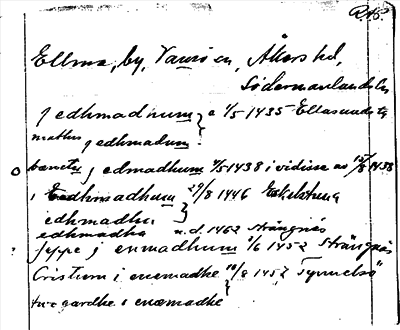 RAS.
Ellma, by, Vansö sn, Åkers hd,
Södermanlands län
j edhmadhum } o 1/5 1435 Ellasunds tg
mathus j edhmadum
benctu j edmadhum 4/5 1438 i vidisse av 15/8 1438
i Eedhmadhum 29/8 1446 Eskilstuna
edhmadhu }
edhmadha n.d. 1462 Strängnäs
Jeppe j enmadhum 2/6 1452 Strängnäs
Cristiern i enemadhe 10/8 1457 Tynnelsö
ture gardhe i enæmadhe }